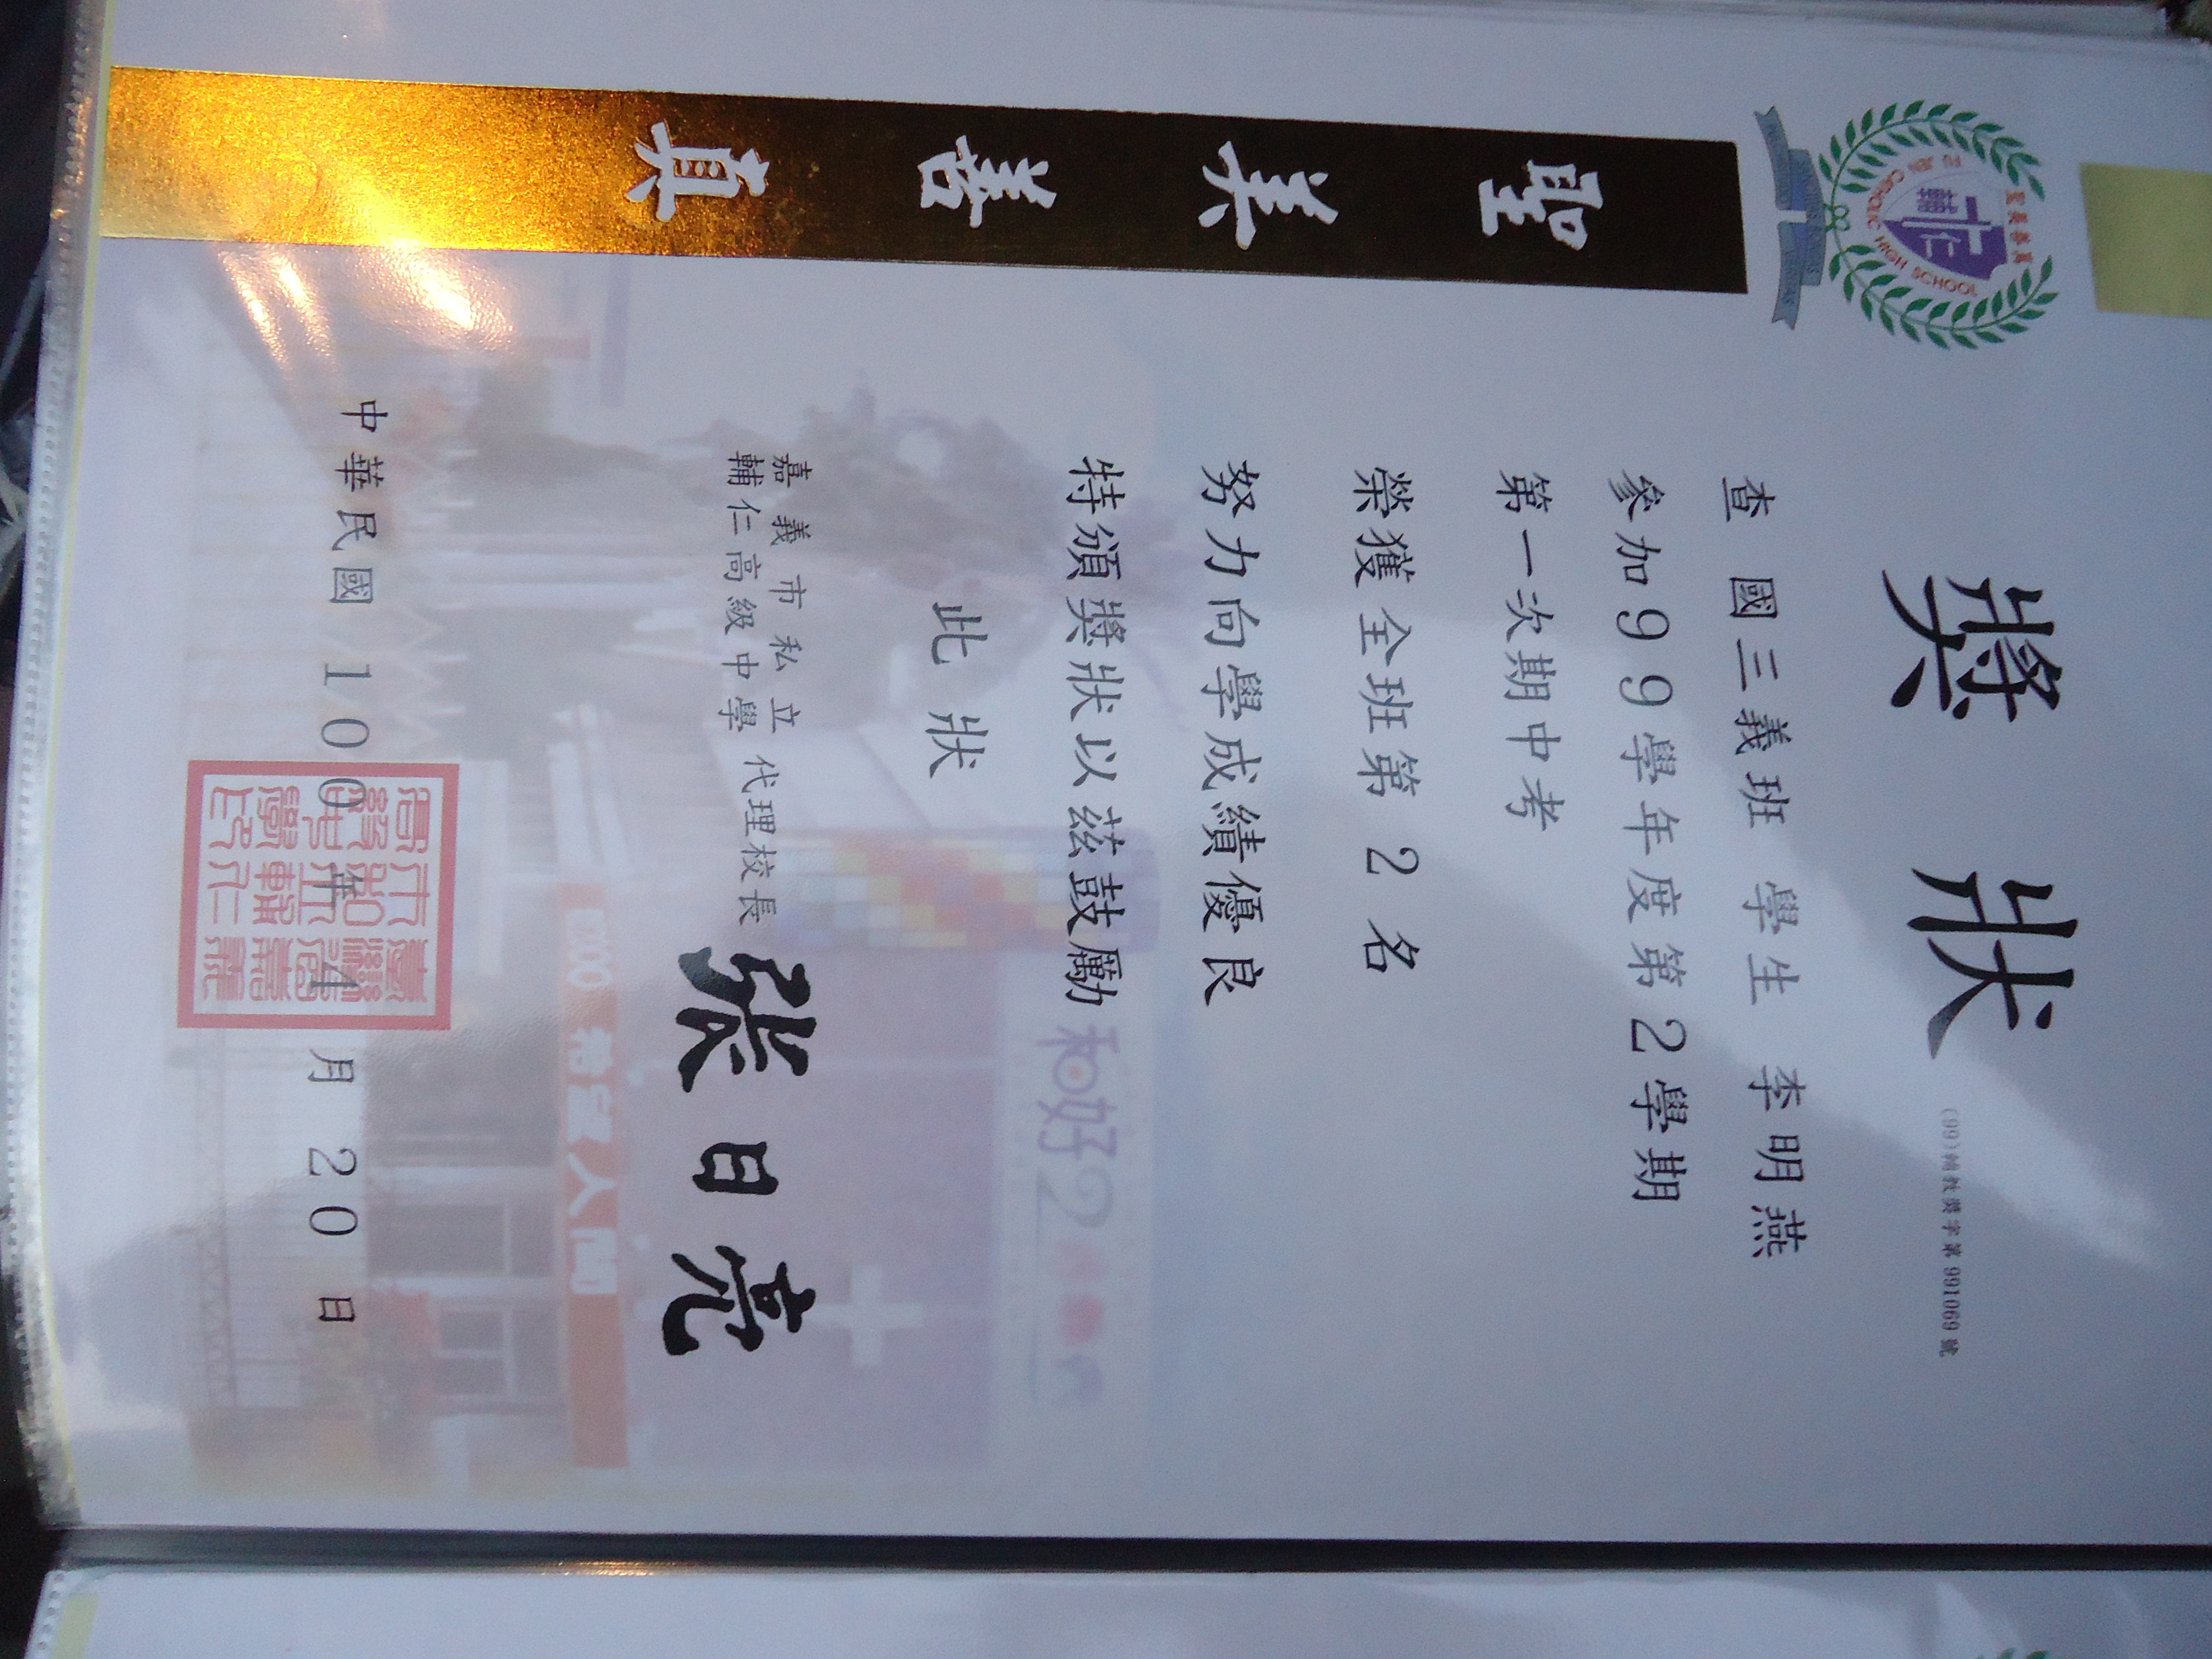 獎 狀
(99)輔教獎字第 991069 號
查 國三義班 學生 李明燕
參加99學年度第2學期
第一次期中考
榮獲全班第 2 名
努力向學成績優良
特頒獎狀以茲鼓勵
此 狀
嘉義市私立
輔仁高級中學 代理校長 張日亮
中華民國 100 年 4 月 20 日
聖 美 善 真
聖美善真
輔仁
CATHOLIC HIGH SCHOOL
和好2